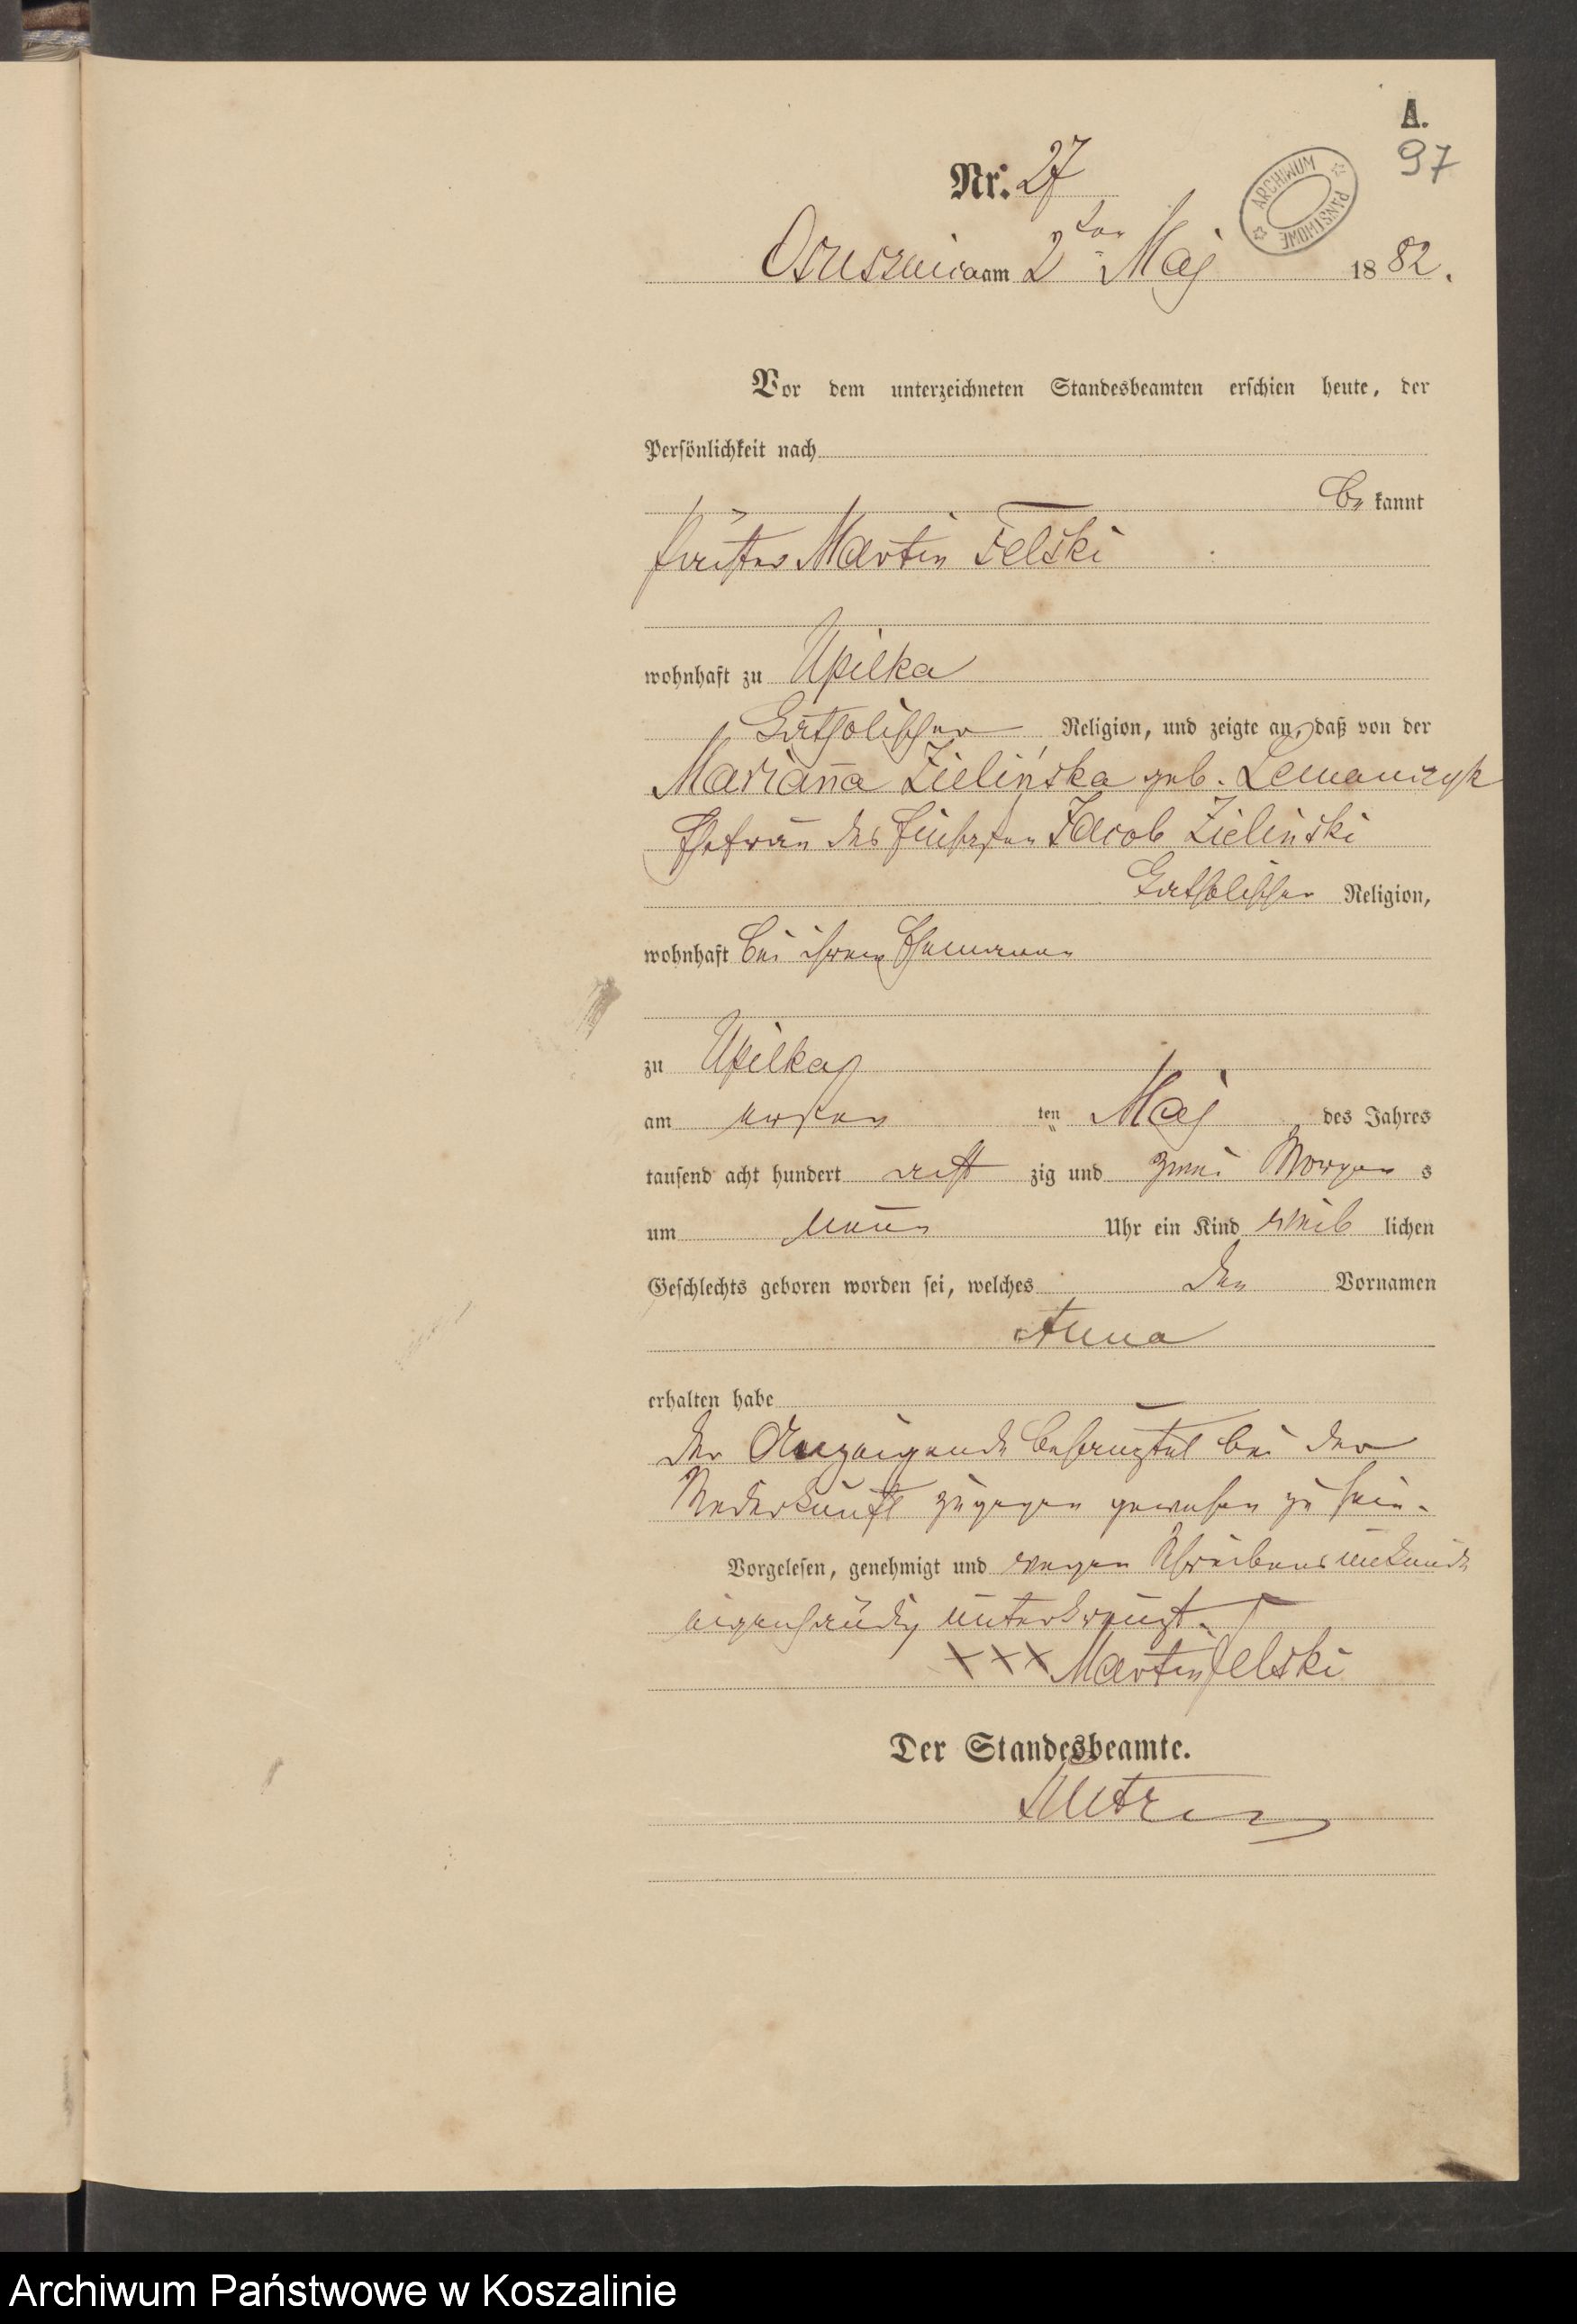 A.
97
Nr. 27
ARCHIWUM PAŃSTWOWE
Osusznica am 2ten Maj 1882.
Vor dem unterzeichneten Standesbeamten erschien heute, der
Persönlichkeit nach
be kannt
Martin Felski
wohnhaft zu Upilka
katholischer Religion, und zeigte an, daß von der
Marianna Zielińska geb. Lemanczyk
Ehefrau des Jacob Zieliński
katholischer Religion,
wohnhaft bei ihrem Ehemann
zu Upilka
am ersten ten Maj des Jahres
tausend acht hundert acht zig und zwei Morgen s
um neun Uhr ein Kind weib lichen
Geschlechts geboren worden sei, welches den Vornamen
Anna
erhalten habe
Der Anzeigende behauptet bei der
Niederkunft zugegen gewesen zu sein.
Vorgelesen, genehmigt und wegen Schreibensunkunde
eigenhändig unterkreuzt.
XXX Martin Felski
Der Standesbeamte.
Archiwum Państwowe w Koszalinie